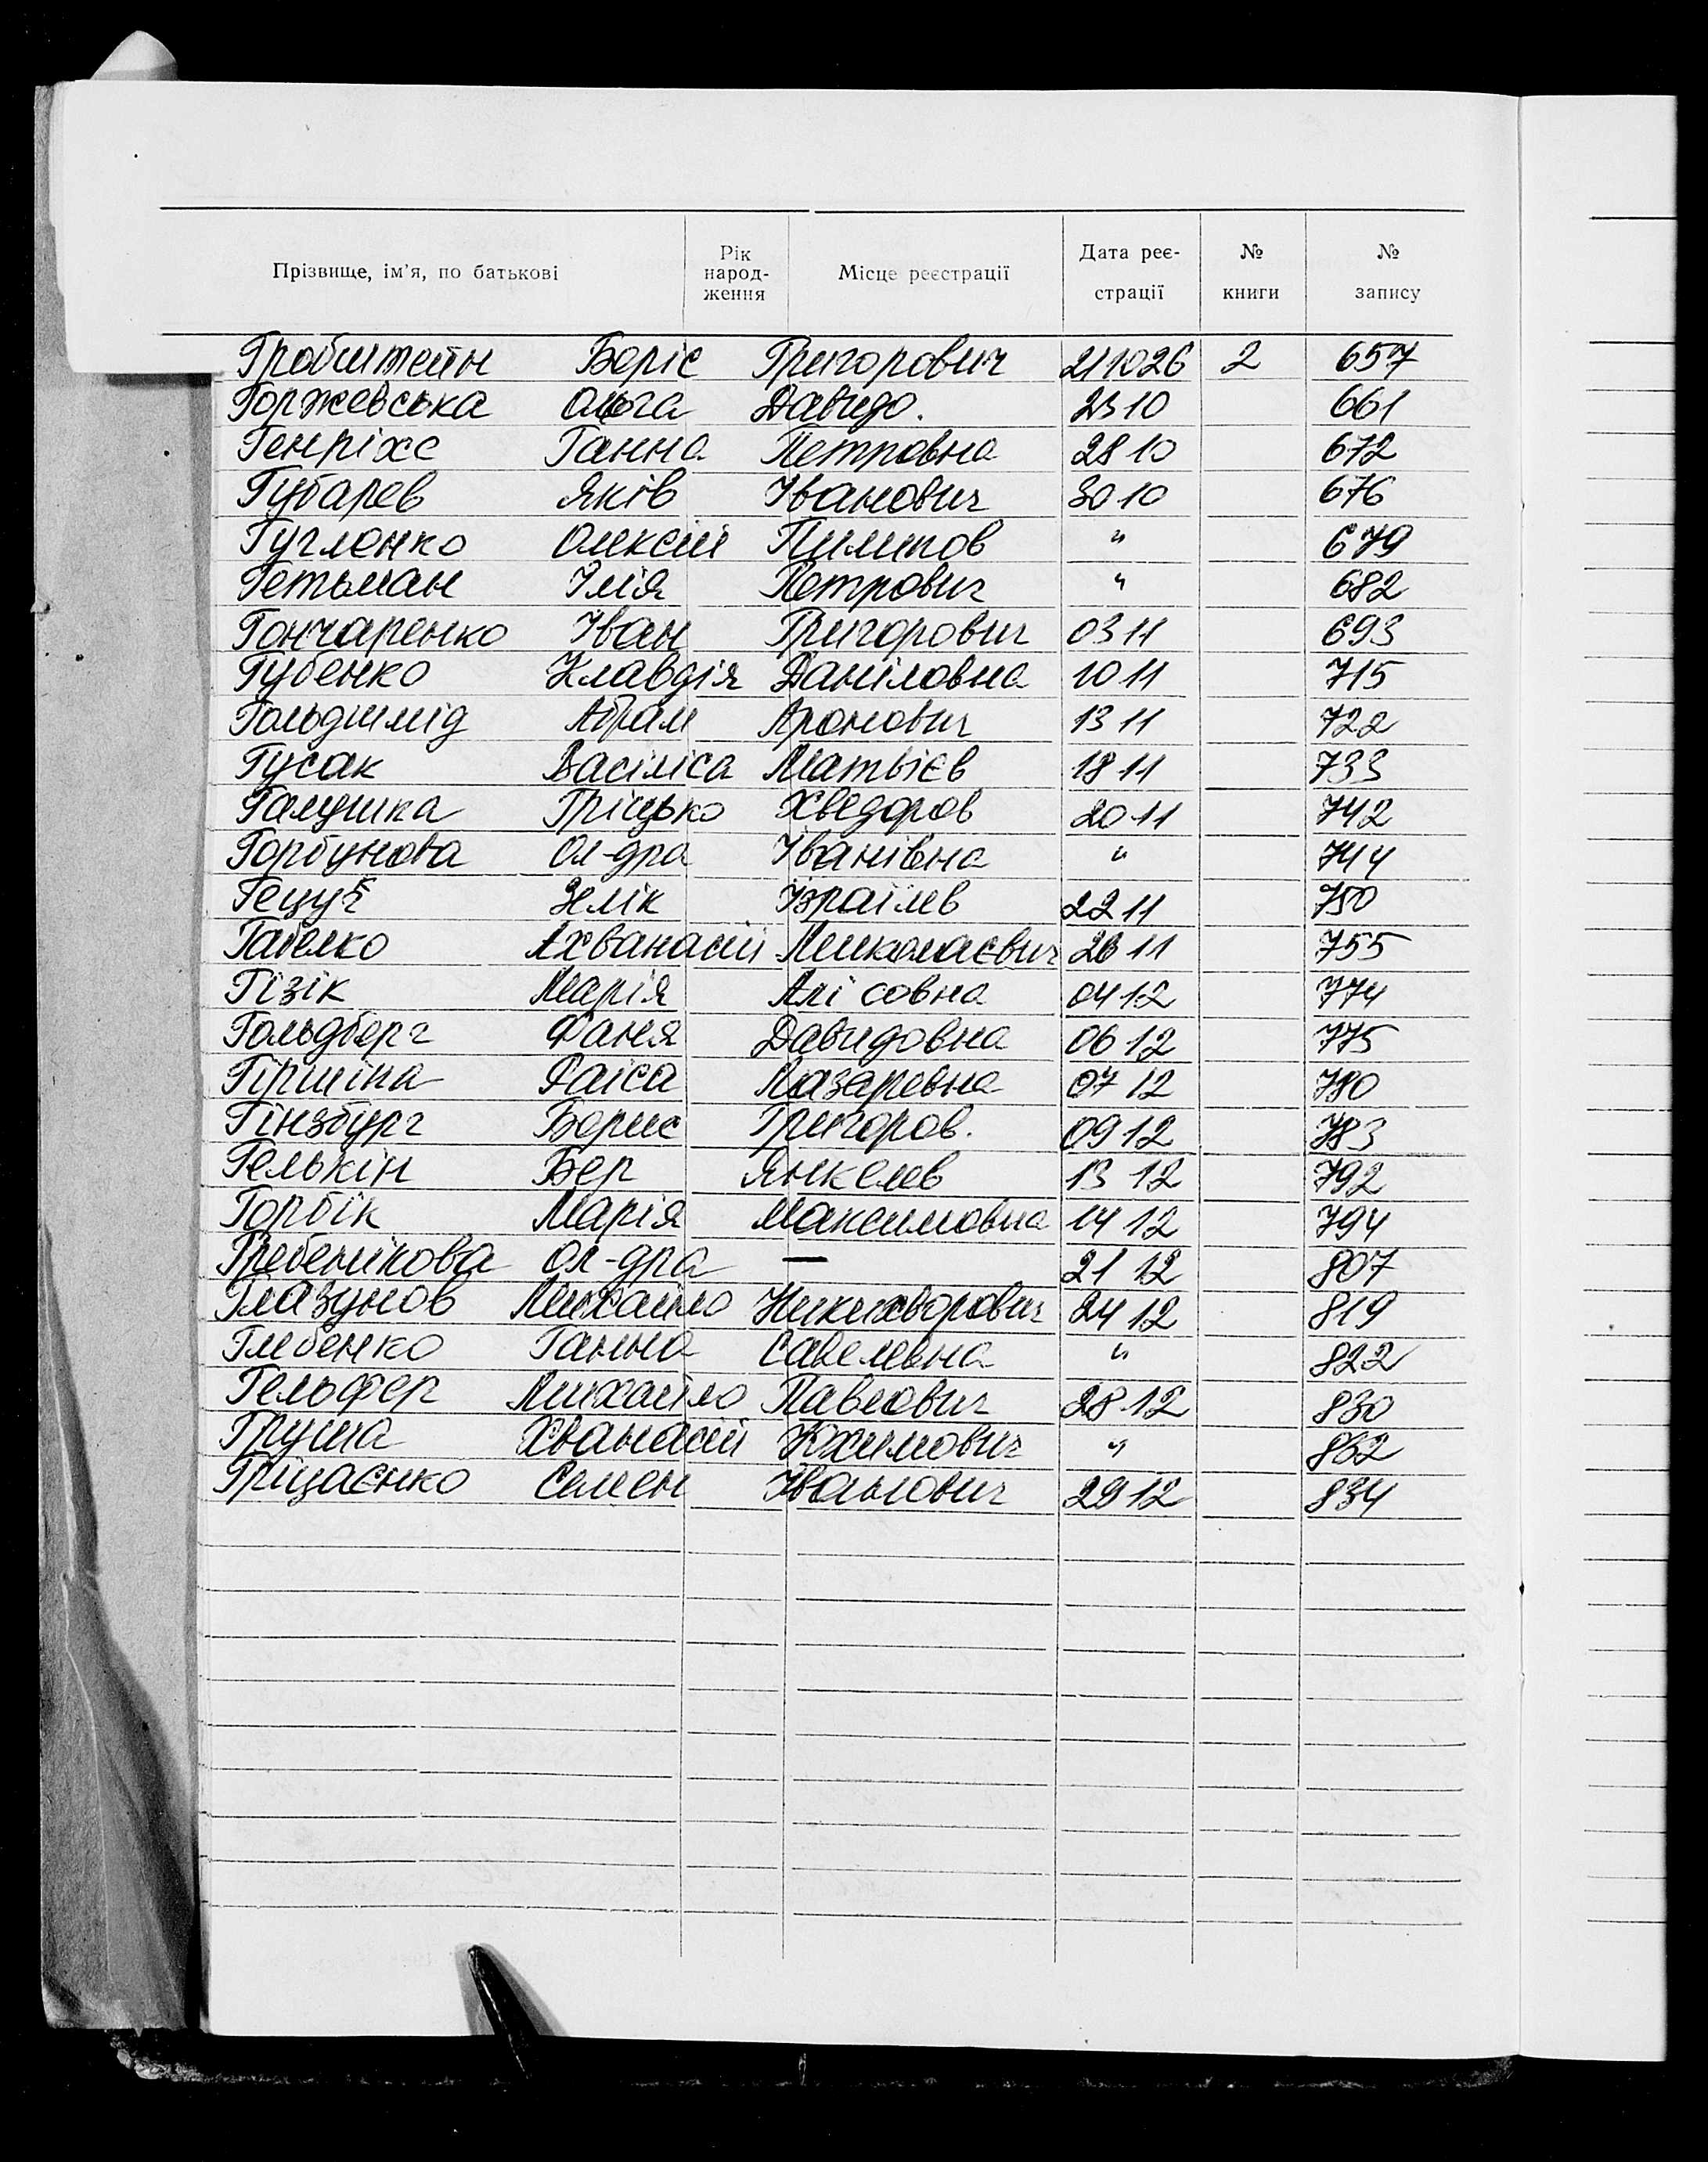 Прізвище, ім'я, по батькові Рік народ-ження Місце реєстрації Дата реє-страції № книги № запису
Гробштейн Беріс Григорович 211026 2 657
Горжевська Ольга Давидо. 2310 661
Генріхс Ганна Петровна 28 10 672
Губарев Яків Іванович 30 10 676
Гугленко Олексій Пилипов " 679
Гетьман Ілія Петрович " 682
Гончаренко Іван Григорович 03 11 693
Губенко Клавдія Даніловна 10 11 715
Гольдшмід Абрам Аронович 13 11 722
Гусак Васіліса Матвієв 18 11 733
Галушка Гріцько Хведоров 20 11 742
Горбунова Ол-дра Іванівна " 744
Зелік Ізраїлев 22 11 750
Ахванасій Миколаєвич 11 755
Гізік Марія совна 04 12 774
Гольдберг Фаня Давидовна 06 12 775
Гіршина Раіса Лазаревна 07 12 780
Гінзбург Борис Григоров. 09 12 783
Гелькін Бер Янкелев 13 12 792
Горбік Марія Максимовна 14 12 794
Гребенікова Ол-дра — 21 12 807
Глазунов Михайло Никихворович 24 12 819
Глебенко Ганна Савелевна " 822
Гельфер Михайло Павлович 28 12 830
Груша Хванасій Юхимович "
Гріцаєнко Семен Іванович 29 12 834